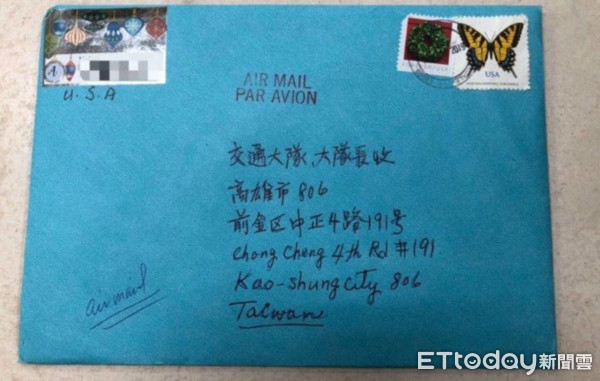 U.S.A
AIR MAIL
PAR AVION
USA
交通大隊、大隊長收
高雄市 806
前金区中正4路191号
Chong Cheng 4th Rd #191
Kao-shung City 806
Taiwan
air mail
ETtoday新聞雲